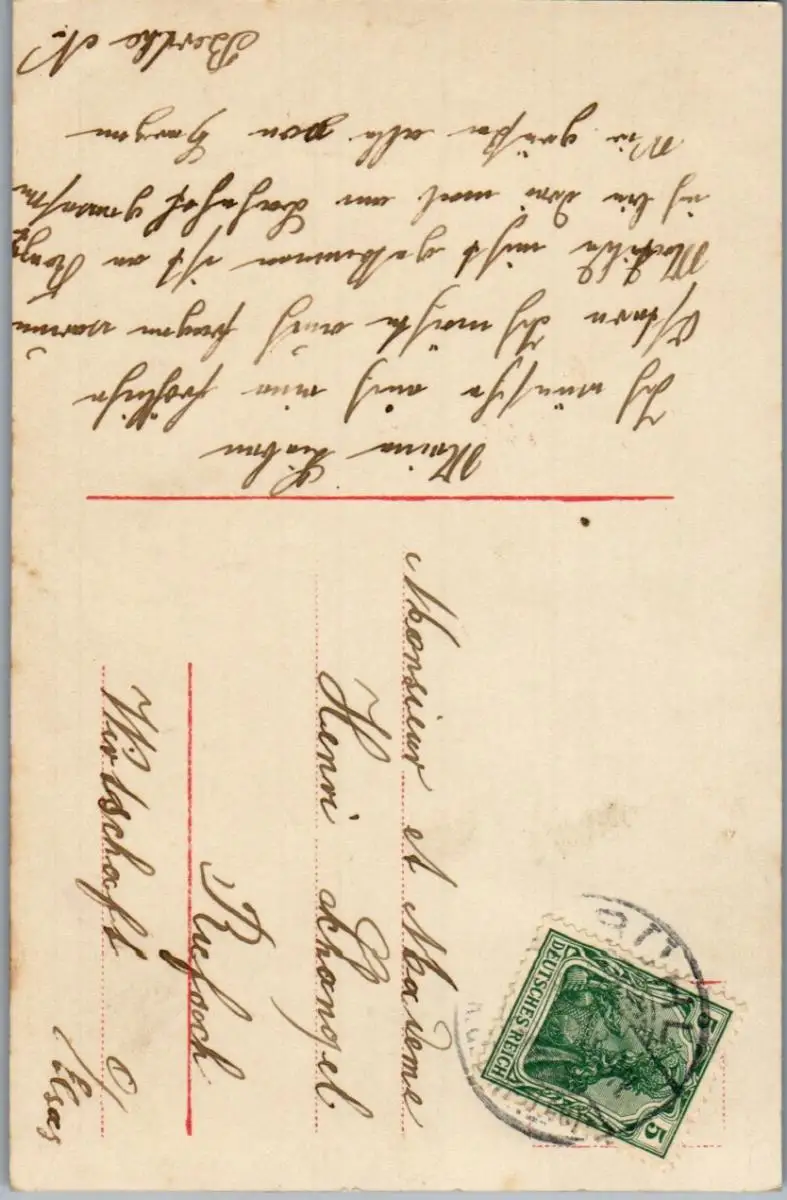 Meine Lieben
Ich wünsche euch eine fröhliche
Ostern Ich möchte euch fragen warum
Mathilde nicht gekommen ist an
ich bin drei mal am Bahnhof gewesen
Wir grüßen alle von Herzen
Bertha N
Monsieur et Madame
Henri Schangel
Rufach
Wirtschaft
O/Elsas
DEUTSCHES REICH
5
5